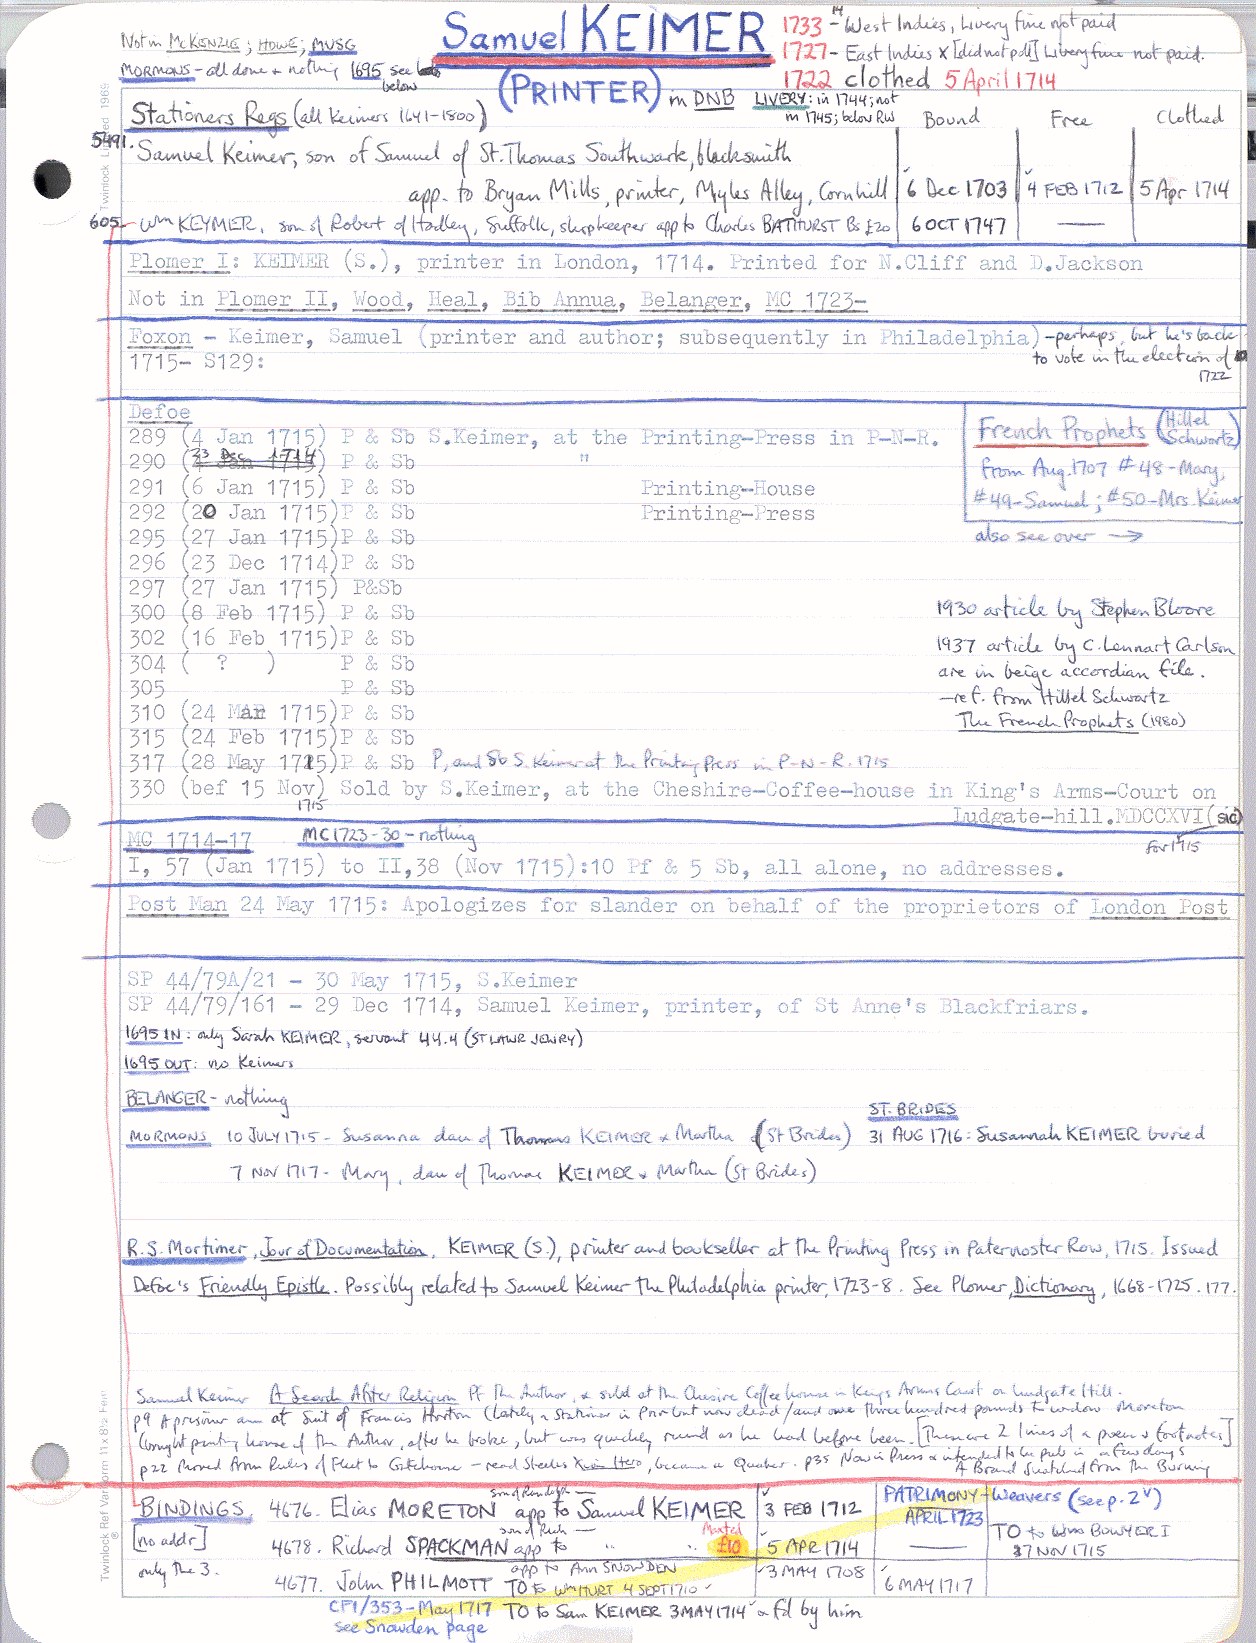 Samuel KEIMER
(PRINTER) in DNB
1733 - West Indies, Livery fine not paid
1727 - East Indies X [did not poll] Livery fine not paid.
1722 clothed 5 April 1714
Not in McKENZIE; HOWE; MVSG
MORMONS - all done & nothing 1695 see below
LIVERY: in 1744; not in 1745; below RW
Stationers Regs (all Keimers 1641-1800) Bound Free Clothed
5491. Samuel Keimer, son of Samuel of St. Thomas Southwark, blacksmith
app. to Bryan Mills, printer, Myles Alley, Cornhill 6 Dec 1703 4 FEB 1712 5 Apr 1714
605 - Wm KEYMER, son of Robert of Hadley, Suffolk, shopkeeper app to Charles BATHURST Bs £20 6 OCT 1747 —
Plomer I: KEIMER (S.), printer in London, 1714. Printed for N.Cliff and D.Jackson
Not in Plomer II, Wood, Heal, Bib Annua, Belanger, MC 1723-
Foxon - Keimer, Samuel (printer and author; subsequently in Philadelphia) - perhaps, but he's back
to vote in the election of 1722
1715- S129:
Defoe
289 (4 Jan 1715) P & Sb S.Keimer, at the Printing-Press in P-N-R.
290 (23 Dec 1714) P & Sb "
291 (6 Jan 1715) P & Sb Printing-House
292 (20 Jan 1715)P & Sb Printing-Press
295 (27 Jan 1715)P & Sb
296 (23 Dec 1714)P & Sb
297 (27 Jan 1715) P&Sb
300 (8 Feb 1715) P & Sb
302 (16 Feb 1715)P & Sb
304 ( ? ) P & Sb
305 P & Sb
310 (24 Mar 1715)P & Sb
315 (24 Feb 1715)P & Sb
317 (28 May 1715)P & Sb P, and Sb S. Keimer at the Printing Press in P-N-R. 1715
330 (bef 15 Nov) Sold by S.Keimer, at the Cheshire-Coffee-house in King's Arms-Court on
1715 Ludgate-hill.MDCCXVI (sic)
for 1715
French Prophets (Hillel Schwartz)
From Aug. 1707 #48 - Mary,
#49 - Samuel; #50 - Mrs Keimer
also see over →
1930 article by Stephen Bloore
1937 article by C. Lennart Carlson
are in beige accordian file.
- ref. from Hillel Schwartz
The French Prophets (1980)
MC 1714-17 MC 1723-30 - nothing
I, 57 (Jan 1715) to II,38 (Nov 1715):10 Pf & 5 Sb, all alone, no addresses.
Post Man 24 May 1715: Apologizes for slander on behalf of the proprietors of London Post
SP 44/79A/21 - 30 May 1715, S.Keimer
SP 44/79/161 - 29 Dec 1714, Samuel Keimer, printer, of St Anne's Blackfriars.
1695 IN: only Sarah KEIMER, servant 44.4 (ST LAWR JEWRY)
1695 OUT: no Keimers
BELANGER - nothing
ST. BRIDES
MORMONS 10 JULY 1715 - Susanna dau of Thomas KEIMER & Martha (St Brides) 31 AUG 1716: Susannah KEIMER buried
7 NOV 1717 - Mary, dau of Thomas KEIMER & Martha (St Brides)
R.S. Mortimer, Jour of Documentation, KEIMER (S.), printer and bookseller at the Printing Press in Paternoster Row, 1715. Issued
Defoe's Friendly Epistle. Possibly related to Samuel Keimer the Philadelphia printer, 1723-8. See Plomer, Dictionary, 1668-1725. 177.
Samuel Keimer A Search After Religion Pf the Author, & sold at the Chesire Coffee house in Kings Arms Court on Ludgate Hill.
p9 A prisoner at Suit of Francis Horton (lately a Stationer in but now dead/and owe three hundred pounds to widow Moreton
bought printing house of the Author, after he broke, but was quickly ruin'd as he had before been. [There are 2 lines of a poem & footnotes]
p22 Moved from Rules of Fleet to Gatehouse - read , became a Quaker. p35 Now in Press & intended to be pub in a few days
A Brand Snatched from the Burning
BINDINGS 4676. Elias MORETON son of Randolph — app to Samuel KEIMER 3 FEB 1712 PATRIMONY - Weavers (see p. 2v)
APRIL 1723
[no addr] 4678. Richard SPACKMAN son of Rich — app to " " Marted £10 5 APR 1714 — TO to Wm BOWYER I
17 NOV 1715
only the 3. 4677. John PHILMOTT app to Ann SNOWDEN 3 MAY 1708 6 MAY 1717
TO to Wm HURT 4 SEPT 1710
CF1/353 - May 1717 TO to Sam KEIMER 3 MAY 1714 & f'd by him
see Snowden page
Twinlock Limited 1969
Twinlock Ref Variform 11 x 8½ Feint